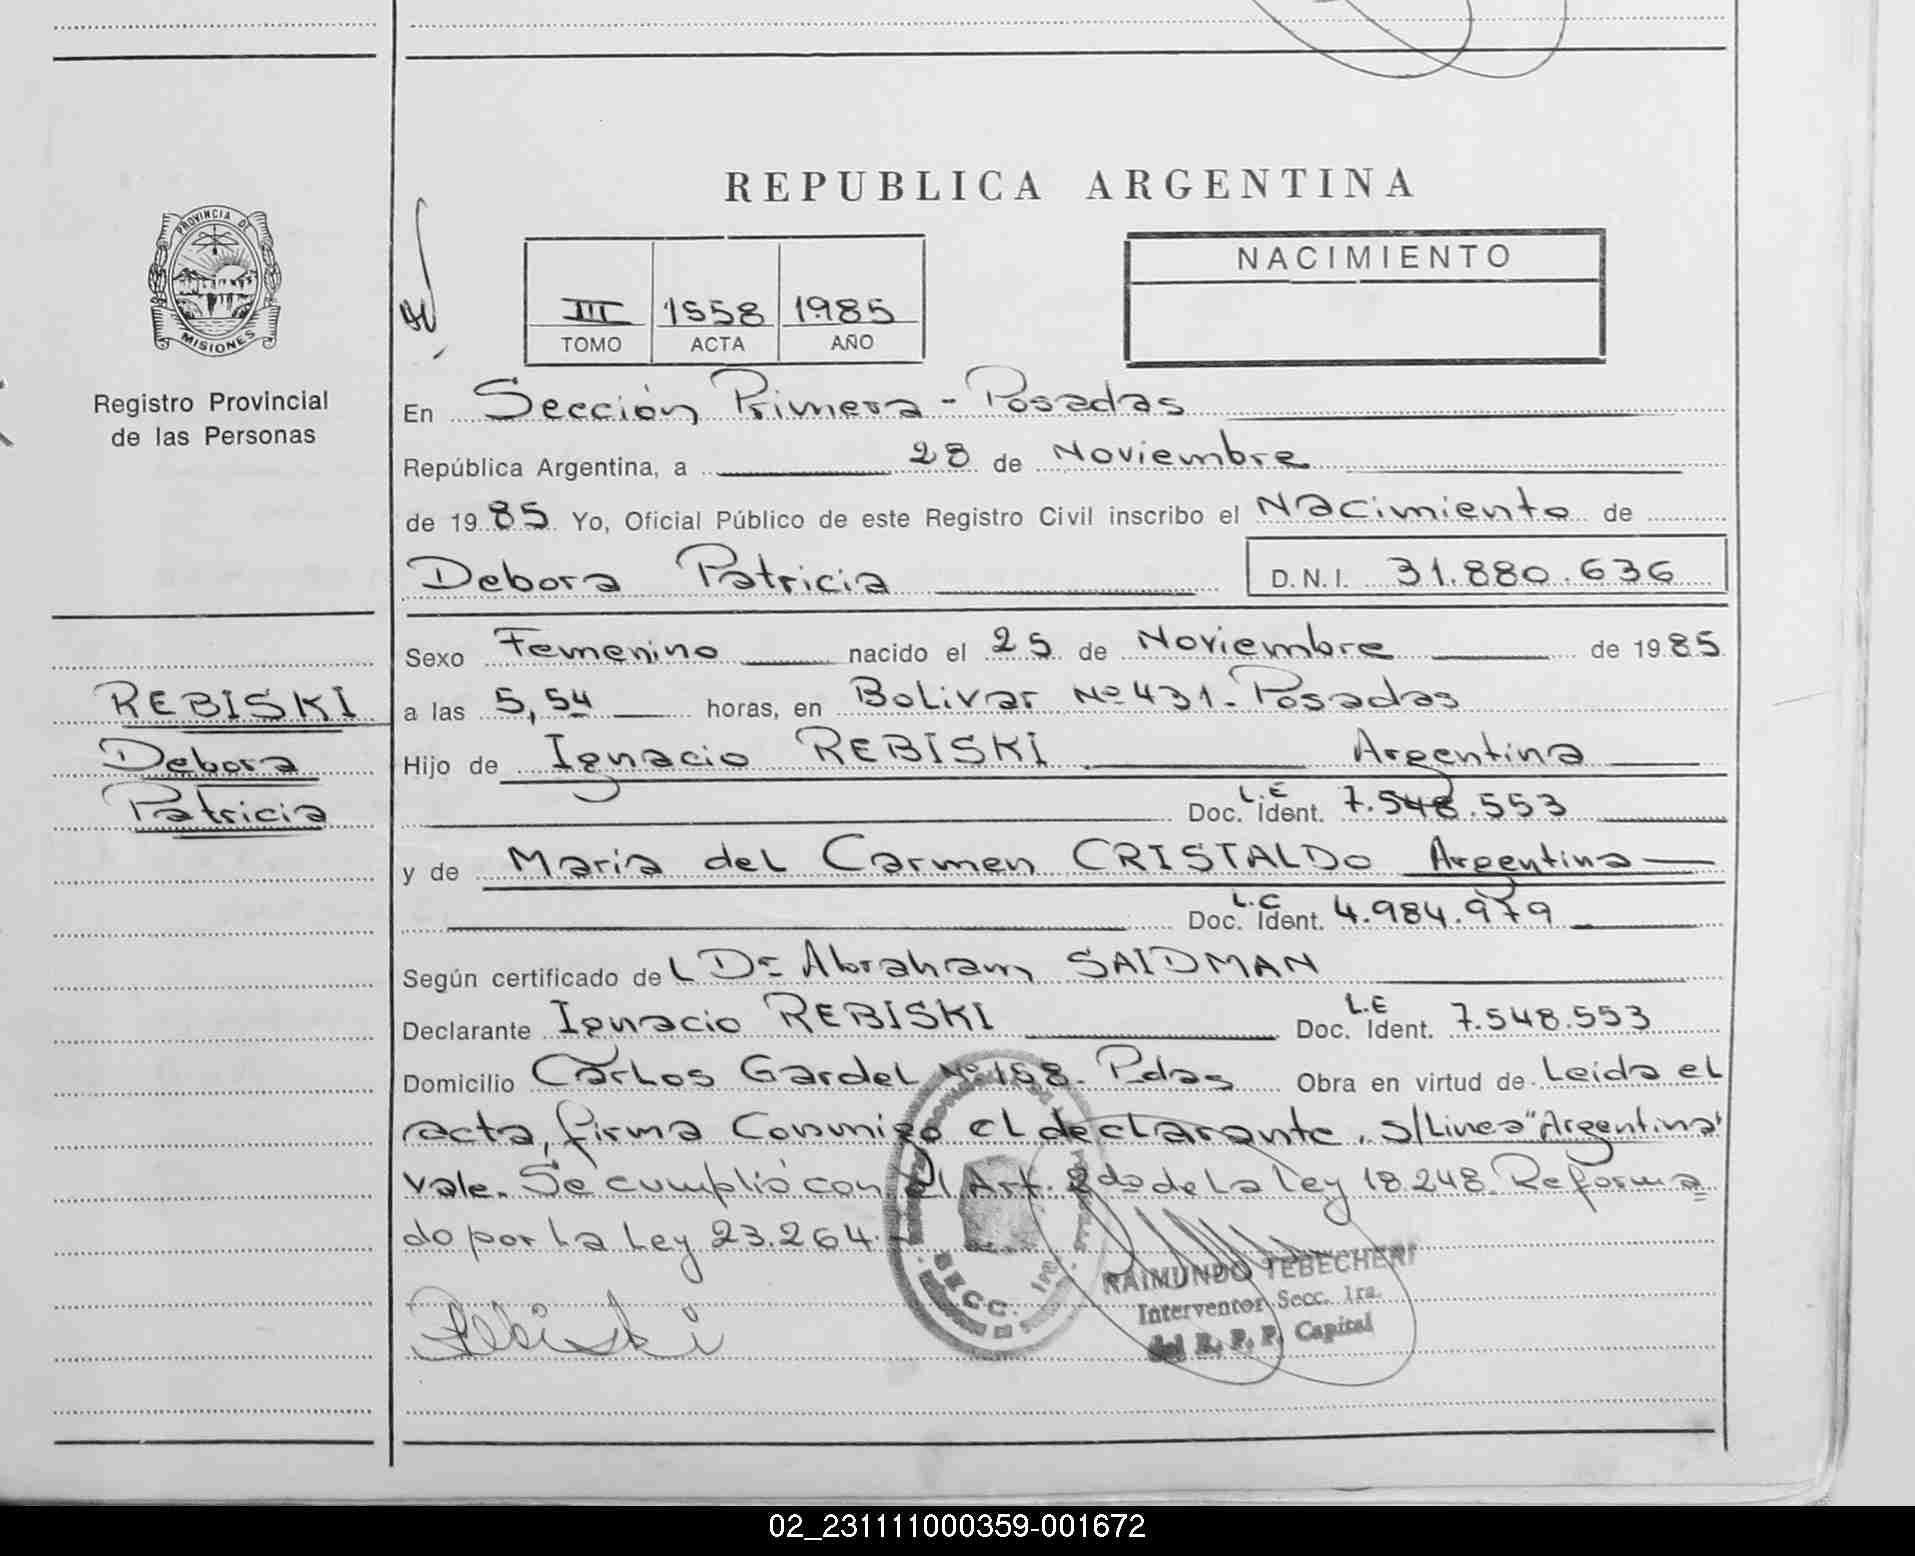 REPUBLICA ARGENTINA
PROVINCIA DE
MISIONES
Registro Provincial
de las Personas
III 1558 1985
TOMO ACTA AÑO
NACIMIENTO
En Sección Primera - Posadas
República Argentina, a 28 de Noviembre
de 1985 Yo, Oficial Público de este Registro Civil inscribo el Nacimiento de
Debora Patricia D.N.I. 31.880.636
Sexo Femenino nacido el 25 de Noviembre de 1985
REBISKI
Debora
Patricia
a las 5,54 horas, en Bolivar Nº 431 - Posadas
Hijo de Ignacio REBISKI Argentina
L.E
Doc. Ident. 7.548.553
y de Maria del Carmen CRISTALDO Argentina
L.C
Doc. Ident. 4.984.979
Según certificado del Dr Abraham SAIDMAN
Declarante Ignacio REBISKI L.E Doc. Ident. 7.548.553
Domicilio Carlos Gardel Nº 158 - Pdas Obra en virtud de Leida el
acta, firma Conmigo el declarante, s/Linea "Argentina"
vale. Se cumplió con el Art. 2do de La Ley 18.248. Reforma
do por La Ley 23.264.
SECC. 1ra
RAIMUNDO TEBECHERI
Interventor Secc. 1ra.
del R. P. P. Capital
Rebiski
02_231111000359-001672